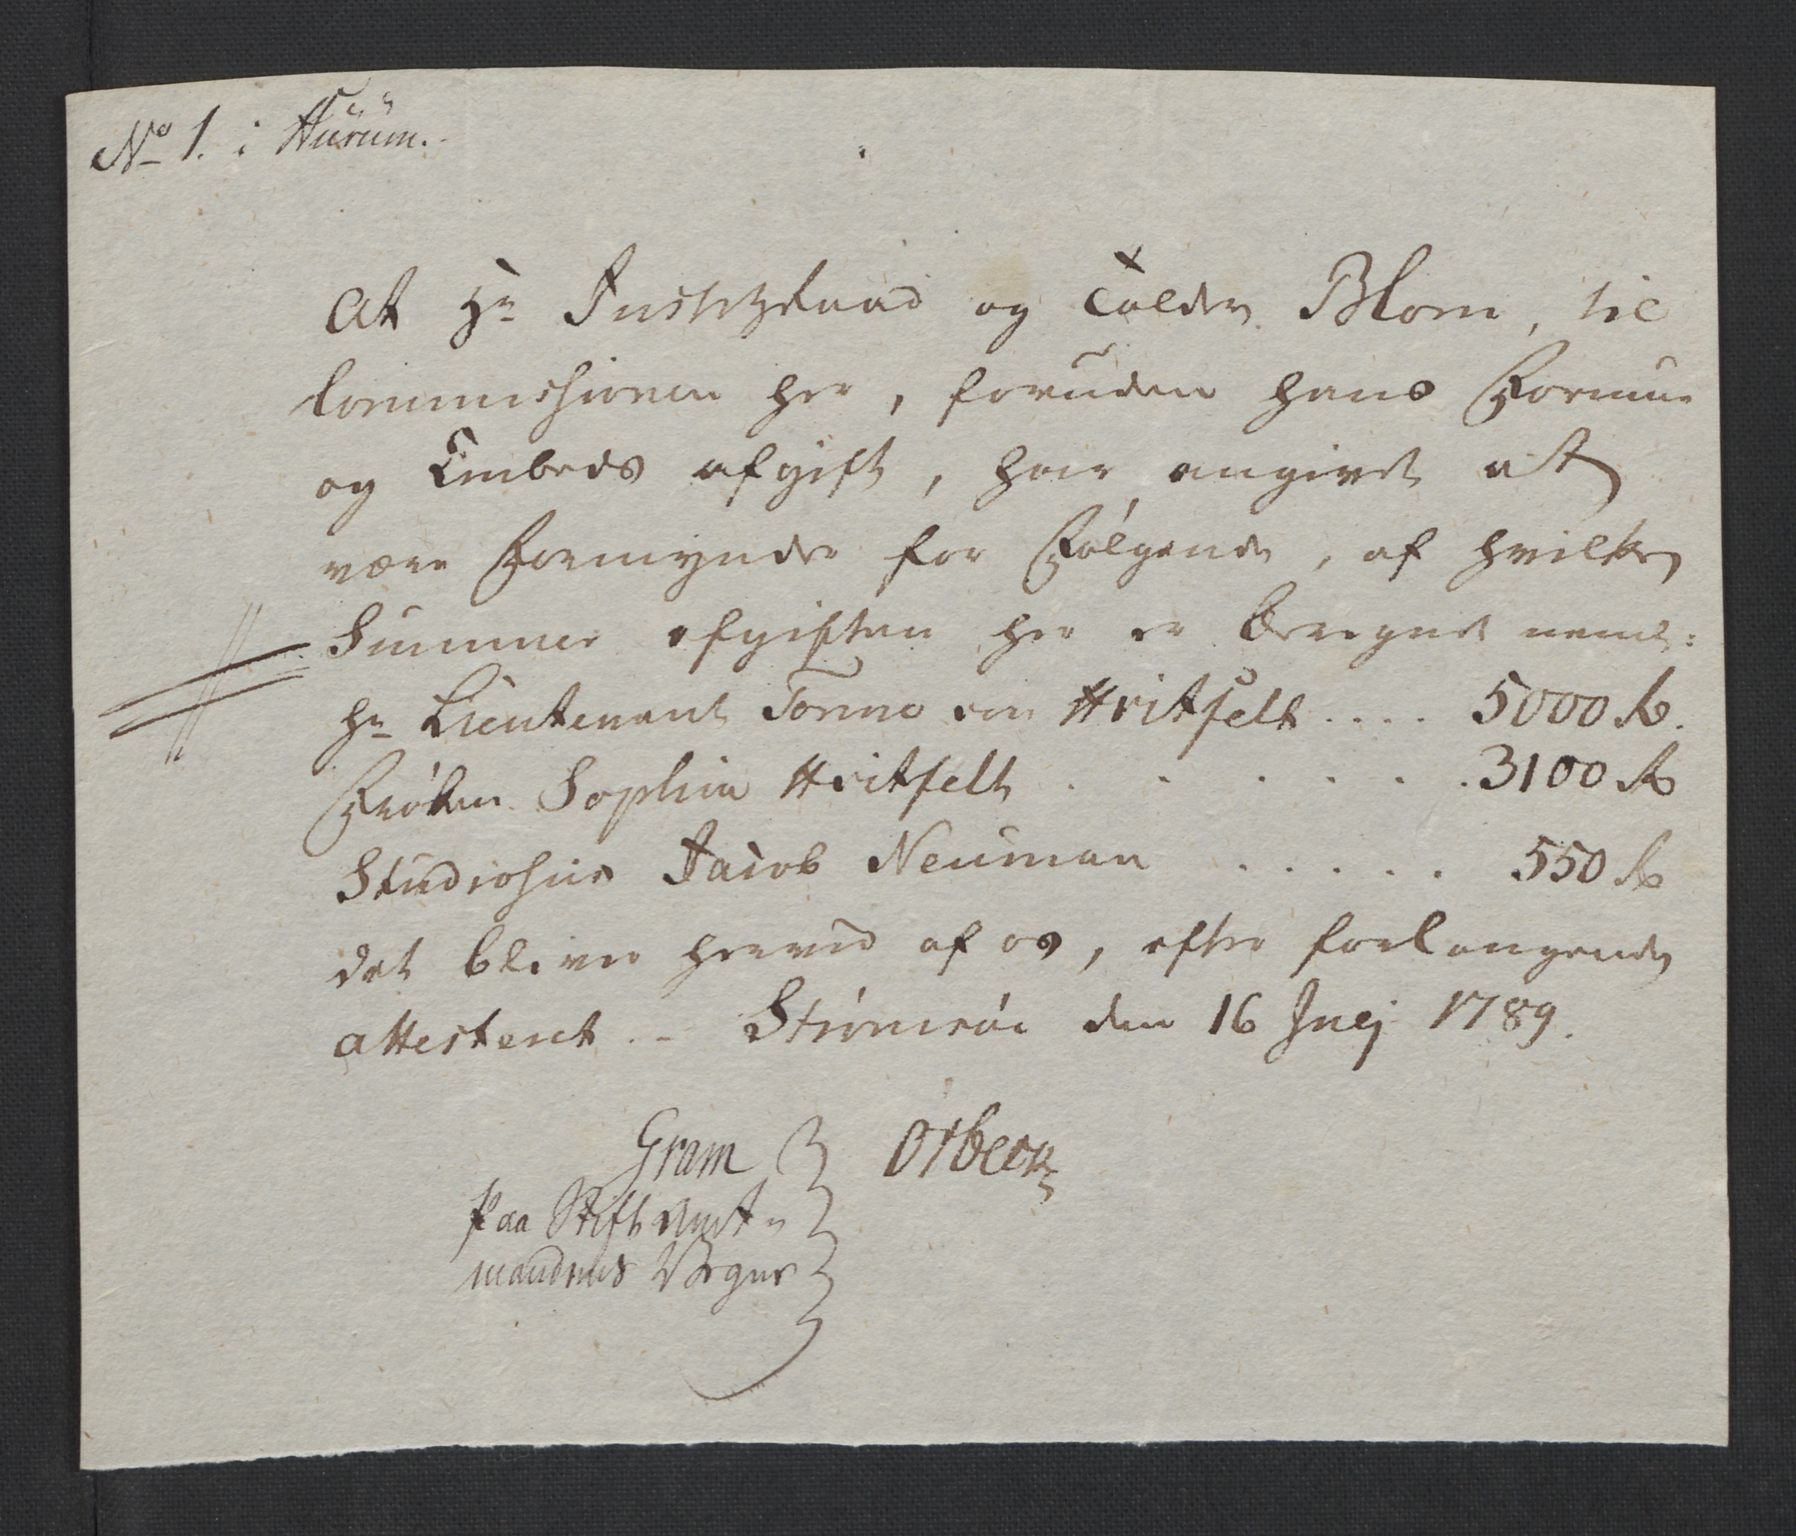 No 1. i Hürüm.
At Hr Justitzraad og Tolder Blom, til
Commissionen her, foruden hans Formue
og Embeds afgift, har angivet at
være Formynder for Følgende, af hvilke
Summer afgiften her er beregnet neml:
Hr Lieutenant Tonne von Hvitfelt .... 5000 Rd.
Frøken Sophia Hvitfelt . . . . . . 3100 Rd
Studiosus Jacob Neuman . . . . . 550 Rd
det bliver herved af os, efter forlangende
attesteret. - Strømsøe den 16 Julj 1789.
Gram Otbeck
paa Stift Amt-
mandens Vegne